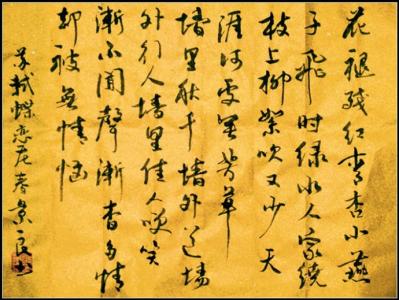 花褪残红青杏小燕
子飛时绿水人家绕
枝上柳絮吹又少天
涯何处无芳草
墙里秋千墙外道墙
外行人墙里佳人咲笑
漸不闻聲漸杳多情
却被無情恼
苏轼蝶恋花春景